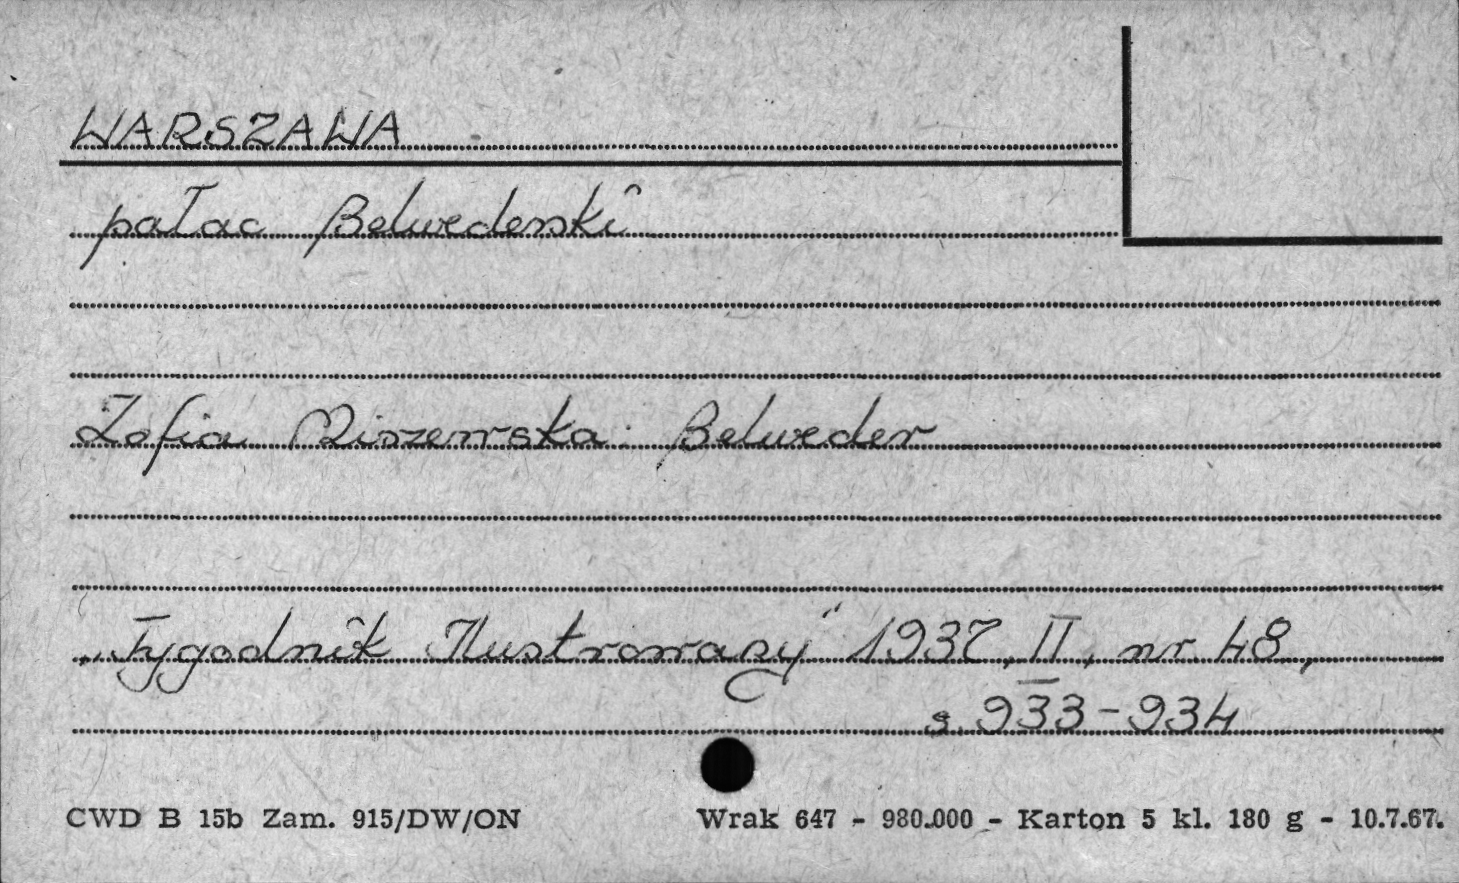 WARSZAWA
pałac Belwederski
Zofia Miszewska: Belweder
„Tygodnik Ilustrowany" 1937, II, nr 48,
s. 933-934
CWD B 15b Zam. 915/DW/ON Wrak 647 - 980.000 - Karton 5 kl. 180 g - 10.7.67.